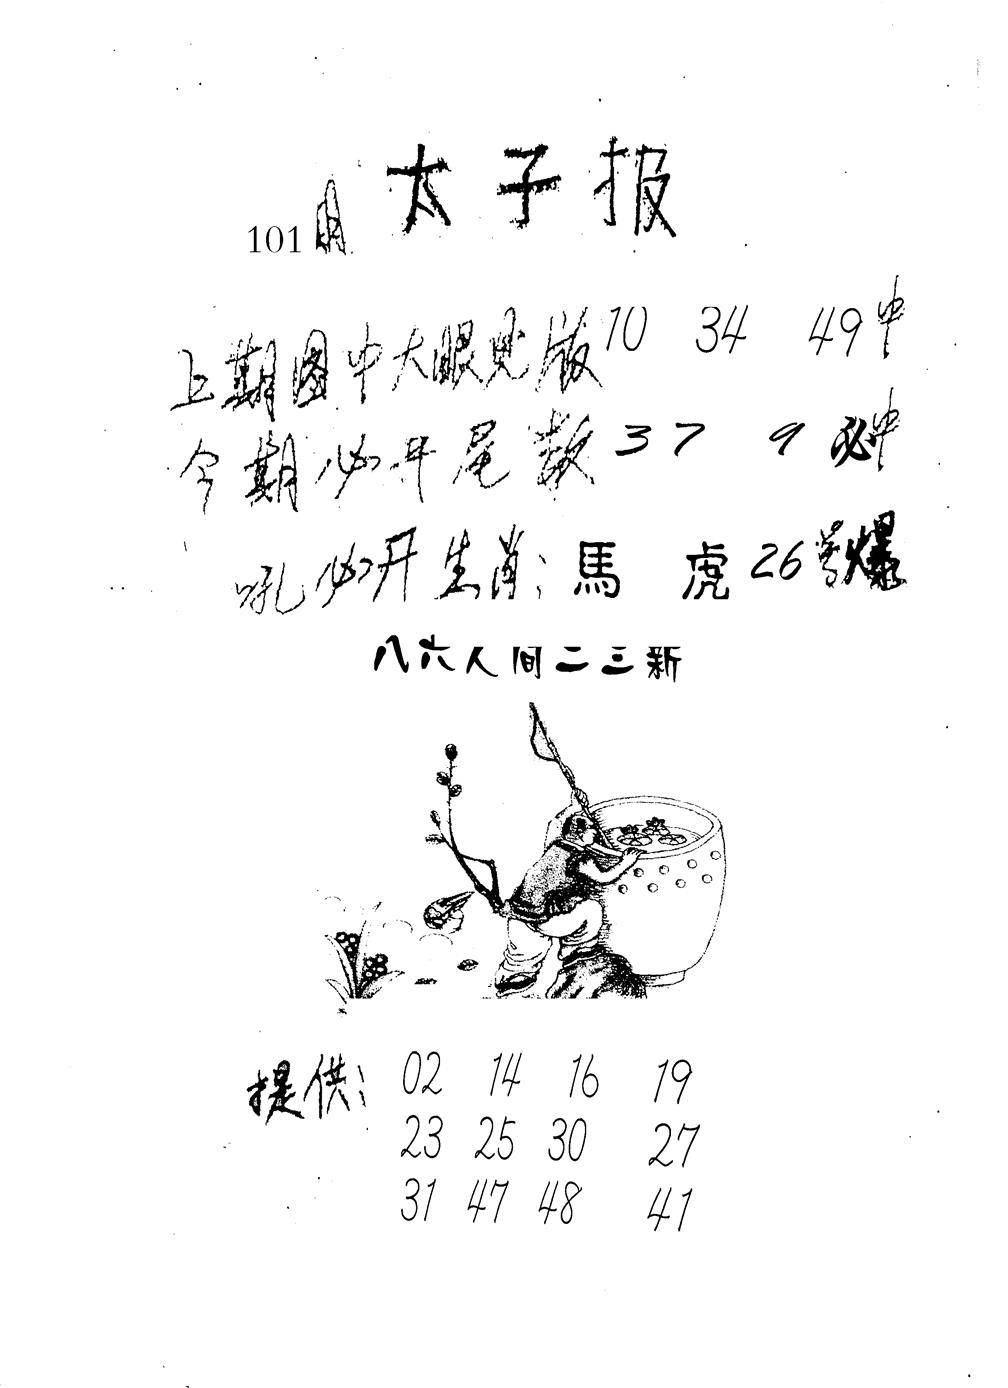 太子报
101期
上期图中大眼见版 10 34 49中
今期必开尾数 3 7 9 必中
吼必开生肖：馬 虎 26 爆
八六人间二三新
提供： 02 14 16 19
23 25 30 27
31 47 48 41